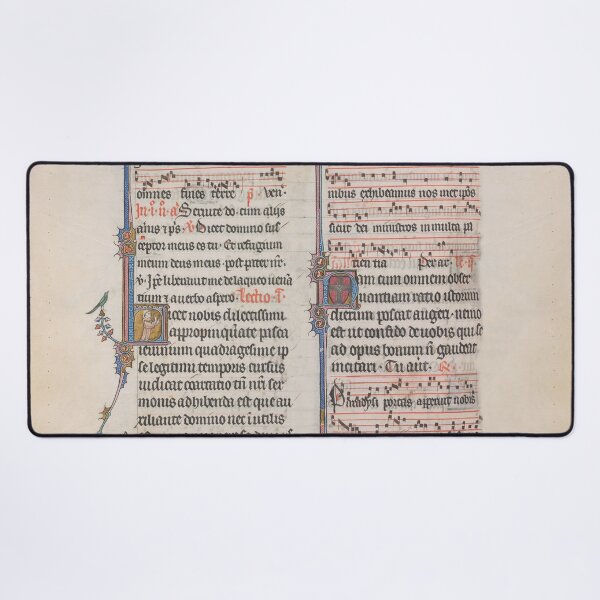 omnes fines terre ven·
Secure do· cum alijs
Dicet domino sus
ceptor meus es tu· Et refugium
meum deus meus· post pater nr̃·
liberauit me de laqueo uena
tium ⁊ a uerbo aspero· Lectio
icet nobis dilectissimi
appropinq̃ate pasca
ieiunium quadragesime ip
se legitimi temporis cursus
indicare coartatio tñ nr̃i ser
monis adhibenda est que au
xiliante domino nec inutilis
nibus exhibeamus nos metip̃os
sicut dei ministros in multa pa
cien tia Per ar·
am cum omnem obser
uantiam ratio istorum
dierum poscat augeri· nemo
est ut confido de nobis qui se
ad opus bonum ñ gaudeat
incitari· Tu aut·
Paradysi portas aperuit nobis